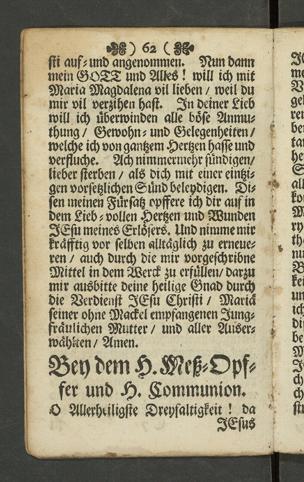 ) 62 (
sti auf- und angenommen. Nun dann
mein GOTT und Alles! will ich mit
Maria Magdalena vil lieben / weil du
mir vil verzihen hast. In deiner Lieb
will ich überwinden alle böse Anmu-
thung / Gewohn- und Gelegenheiten /
welche ich von gantzem Hertzen hasse und
verfluche. Ach nimmermehr sündigen /
lieber sterben / als dich mit einer eintzi-
gen vorsetzlichen Sünd beleydigen. Di-
sen meinen Fürsatz opffere ich dir auf in
dem Lieb-vollen Hertzen und Wunden
JEsu meines Erlösers. Und nimme mir
kräfftig vor selben alltäglich zu erneue-
ren / auch durch die mir vorgeschribne
Mittel in dem Werck zu erfüllen / darzu
mir ausbitte deine heilige Gnad durch
die Verdienst JEsu Christi / Mariä
seiner ohne Mackel empfangenen Jung-
fräulichen Mutter / und aller Auser-
wählten / Amen.
Bey dem H. Meß-Opf-
fer und H. Communion.
O Allerheiligste Dreyfaltigkeit! da
JEsus